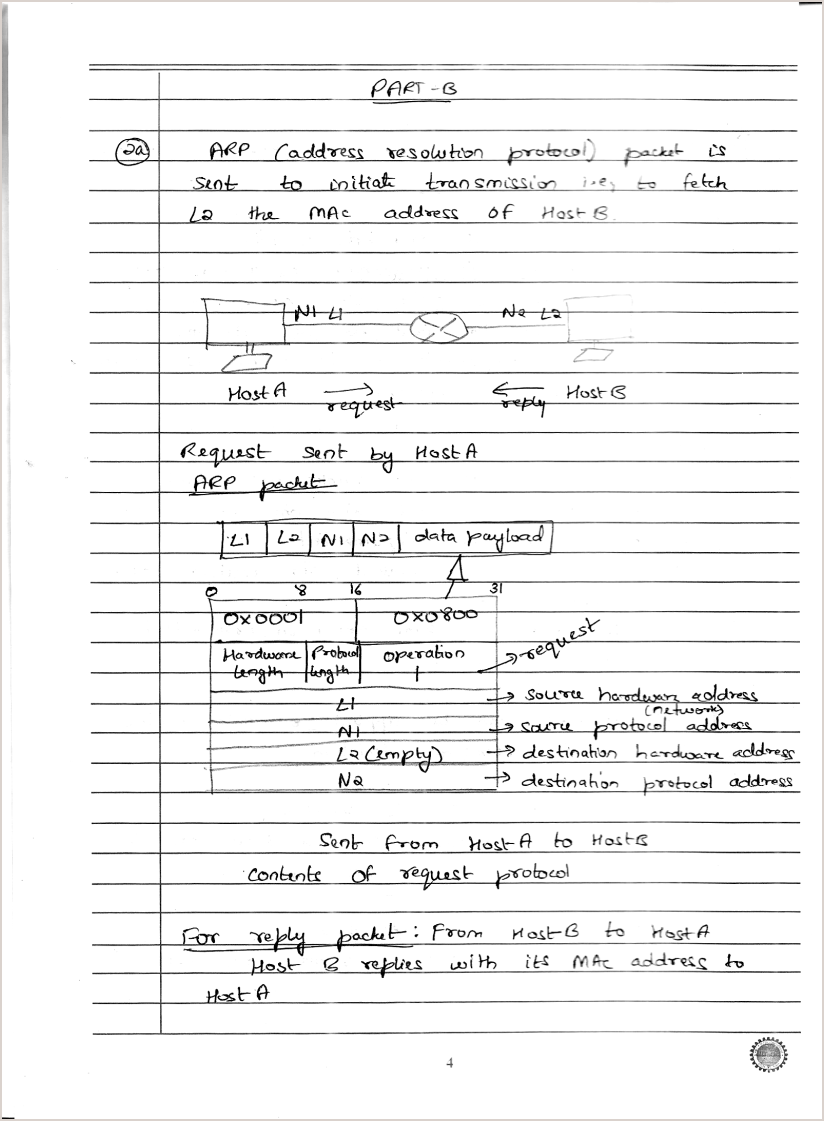 PART-B
2a
ARP (address resolution protocol) packet is
sent to initiate transmission i.e, to fetch
L2 the MAC address of Host B.
N1 L1
N2 L2
Host A
request
reply
Host B
Request sent by Host A
ARP packet
L1 L2 N1 N2 data payload
0 8 16 31
0x0001 0x0800
request
Hardware length Protocol length operation
L1 → source hardware address
(network)
N1 → source protocol address
L2 (empty) → destination hardware address
N2 → destination protocol address
Sent from Host A to Host B
contents of request protocol
For reply packet: From Host B to Host A
Host B replies with its MAC address to
Host A
4